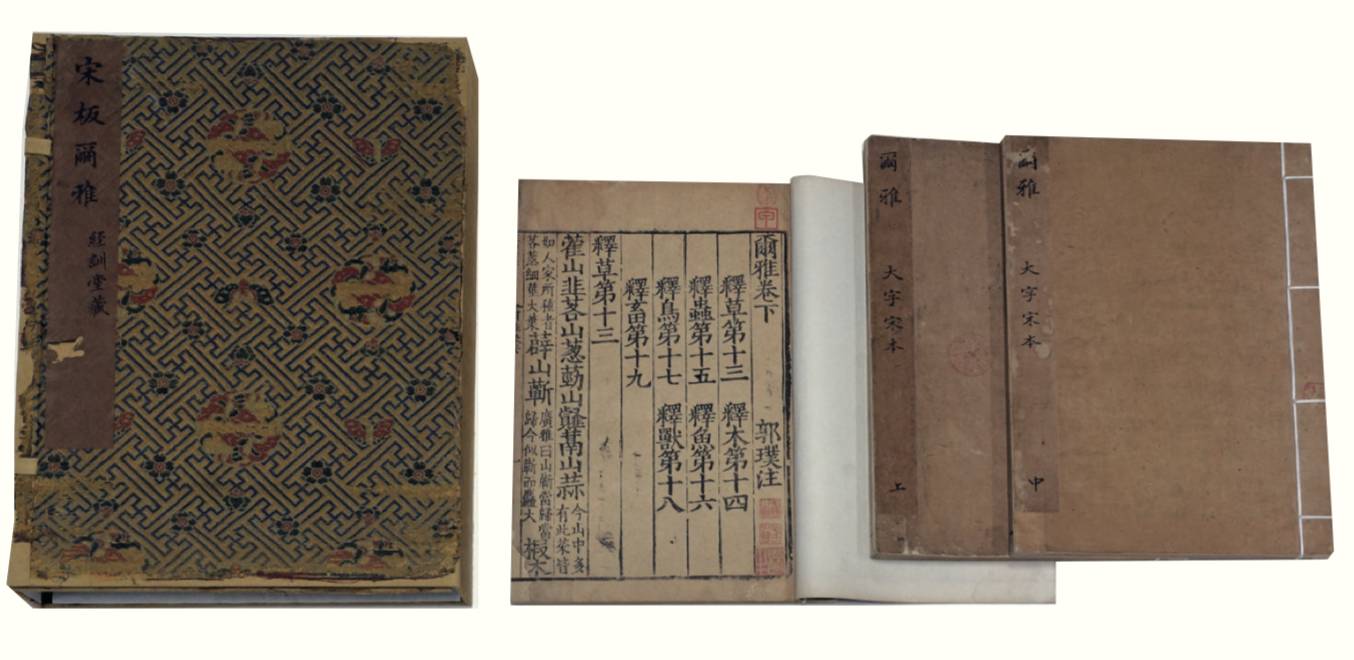 宋板爾雅
經訓堂藏
爾雅卷下 郭璞注
釋草第十三 釋木第十四
釋蟲第十五 釋魚第十六
釋鳥第十七 釋獸第十八
釋畜第十九
釋草第十三
蒮山韭茖山葱葝山䪥蒚山蒜 今山中多有此菜皆
如人家所種者茖葱細莖大葉 薜山蘄 廣雅曰山蘄當歸當歸今似蘄而麤大 椴木
爾雅 大字宋本 上
爾雅 大字宋本 中